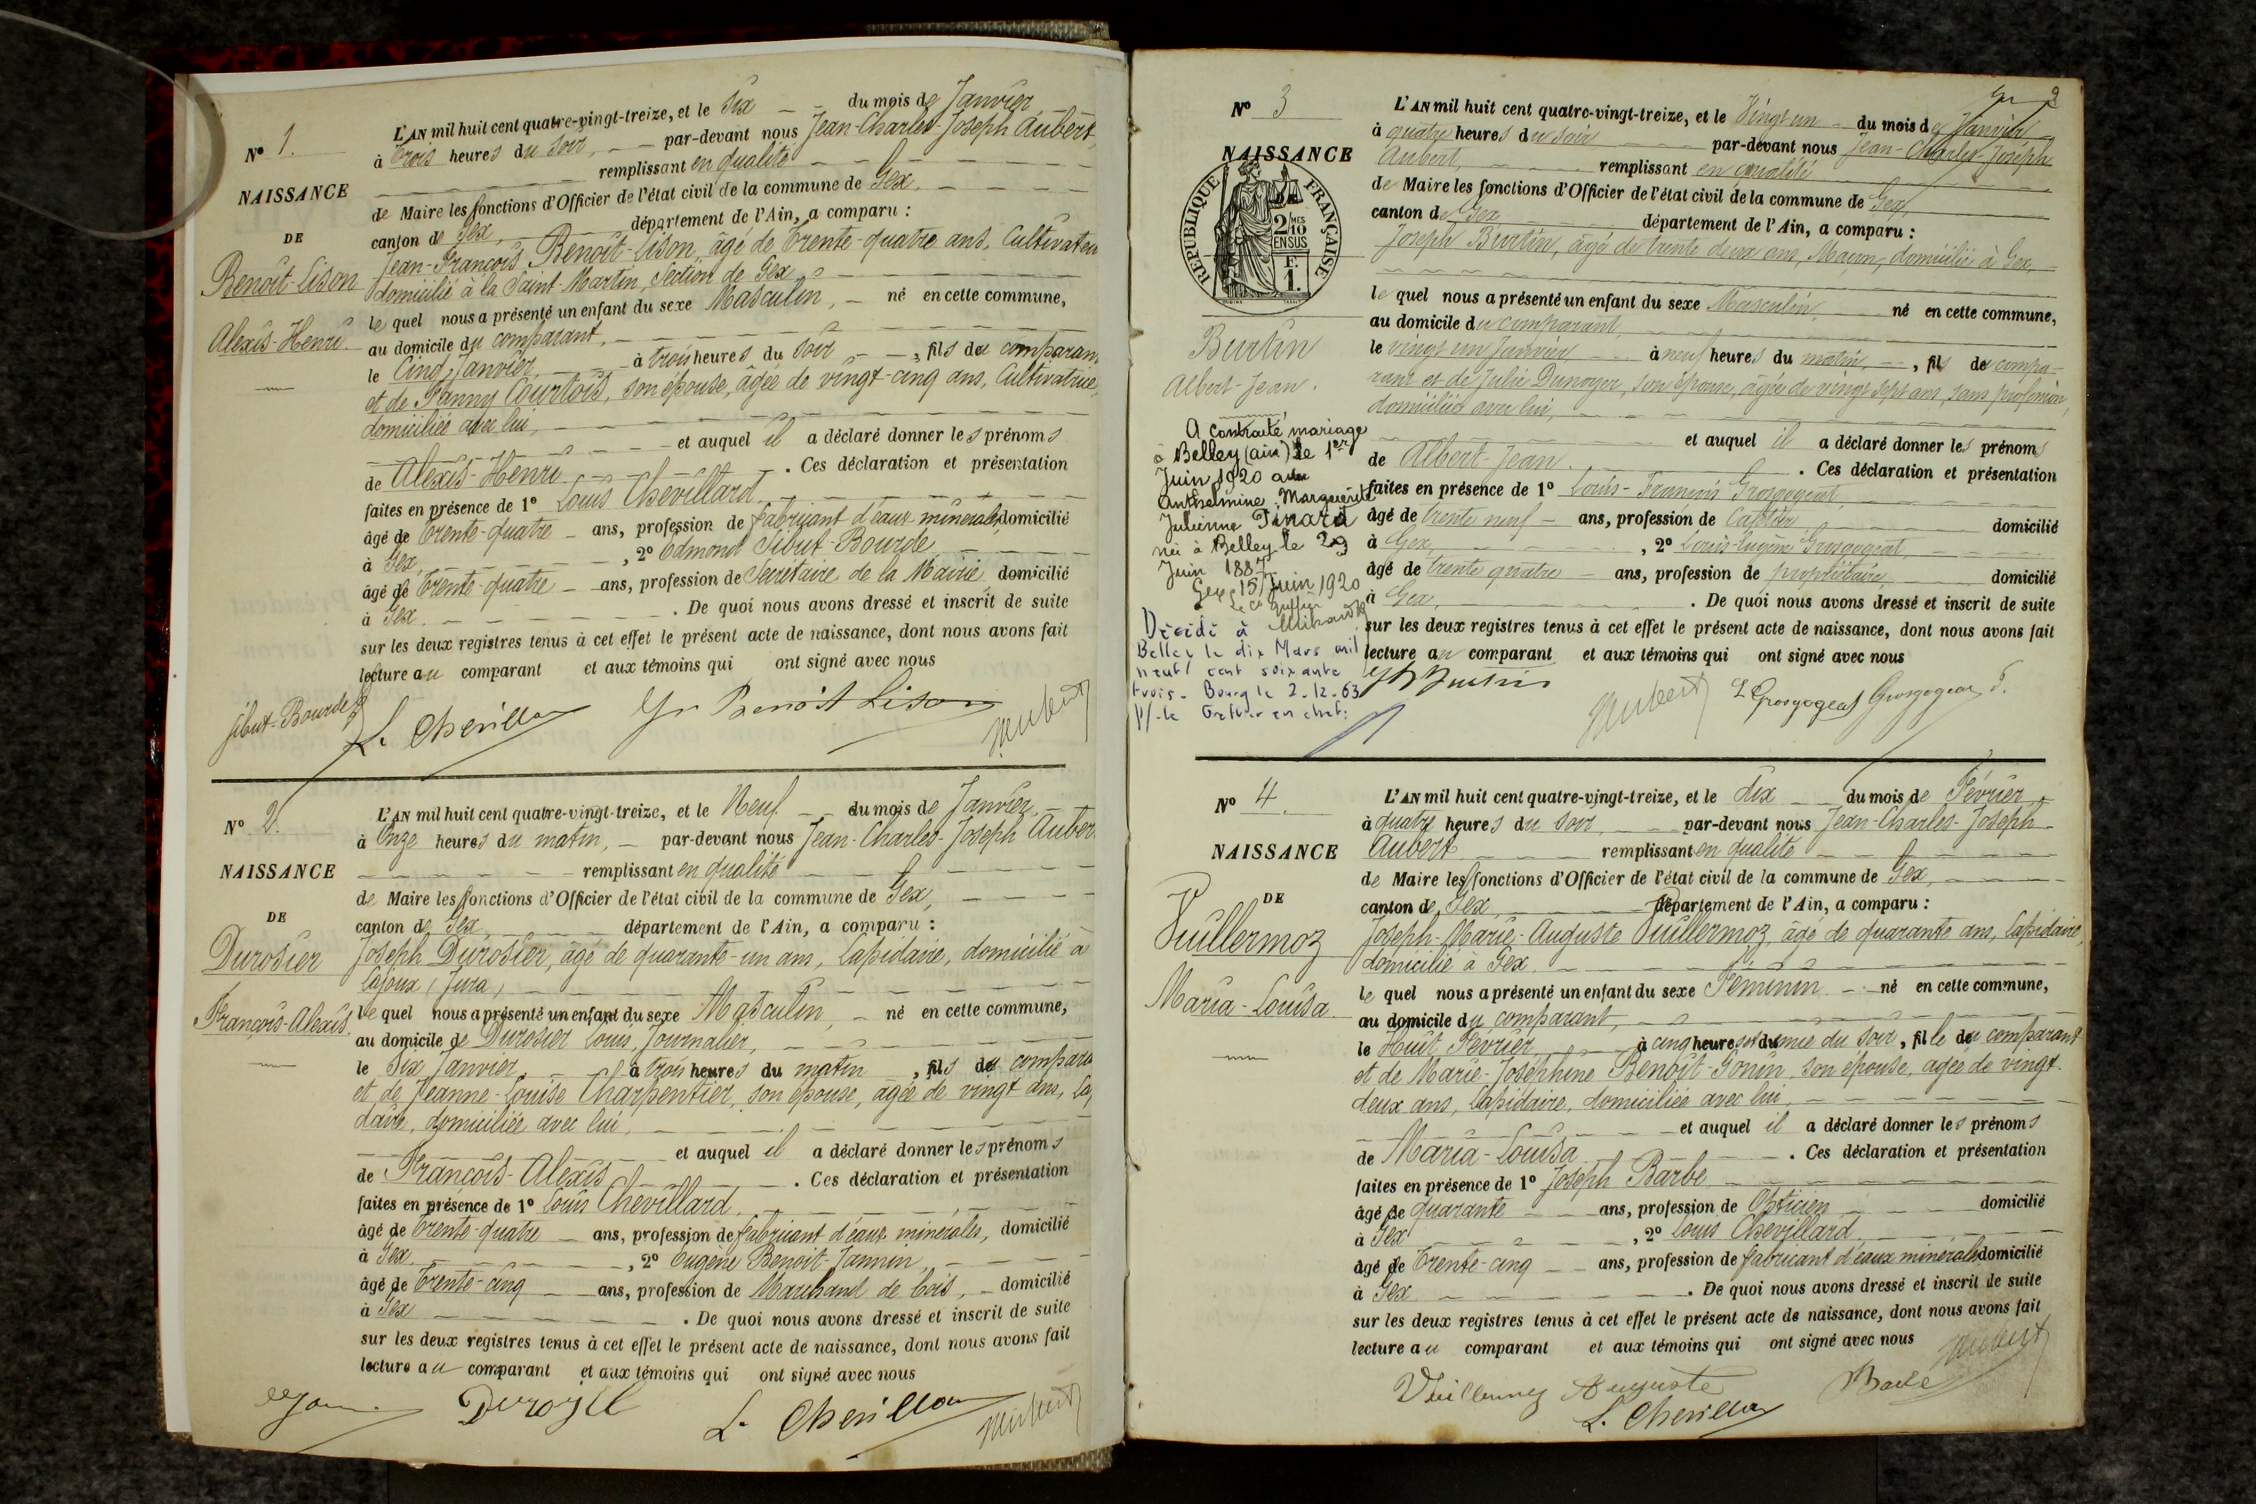 N° 1.
NAISSANCE
DE
Benoît-Lison
Alexis-Henri.
L'AN mil huit cent quatre-vingt-treize, et le Six du mois de Janvier,
à trois heures du soir, par-devant nous Jean-Charles-Joseph Aubert,
remplissant en qualité
de Maire les fonctions d'Officier de l'état civil de la commune de Gex,
canton de Gex, département de l'Ain, a comparu :
Jean-François Benoît-Lison, âgé de trente-quatre ans, Cultivateur
domicilié à la Saint-Martin, Section de Gex
le quel nous a présenté un enfant du sexe Masculin, né en cette commune,
au domicile du comparant,
le Cinq Janvier, à trois heures du soir, fils du comparant
et de Fanny Courtois, son épouse, âgée de vingt-cinq ans, Cultivatrice,
domiciliée avec lui,
et auquel il a déclaré donner les prénoms
de Alexis-Henri. Ces déclaration et présentation
faites en présence de 1° Louis Chevillard,
âgé de trente-quatre ans, profession de fabricant d'eaux minérales, domicilié
à Gex, 2° Edmond Sibut-Bourde
âgé de trente-quatre ans, profession de Secrétaire de la Mairie domicilié
à Gex. De quoi nous avons dressé et inscrit de suite
sur les deux registres tenus à cet effet le présent acte de naissance, dont nous avons fait
lecture au comparant et aux témoins qui ont signé avec nous
Sibut-Bourde L. Chevillard Benoit Lison Aubert
N° 2.
NAISSANCE
DE
Durosier
François-Alexis.
L'AN mil huit cent quatre-vingt-treize, et le Neuf du mois de Janvier,
à Onze heures du matin, par-devant nous Jean-Charles-Joseph Aubert
remplissant en qualité
de Maire les fonctions d'Officier de l'état civil de la commune de Gex,
canton de Gex, département de l'Ain, a comparu :
Joseph Durosier, âgé de quarante-un ans, Lapidaire, domicilié à
Lajoux (Jura)
le quel nous a présenté un enfant du sexe Masculin, né en cette commune,
au domicile de Durosier Louis, Journalier,
le Six Janvier, à trois heures du matin, fils du compara
et de Jeanne-Louise Charpentier, son épouse, âgée de vingt ans, Lap
daire, domiciliée avec lui,
et auquel il a déclaré donner les prénoms
de François-Alexis. Ces déclaration et présentation
faites en présence de 1° Louis Chevillard,
âgé de trente-quatre ans, profession de fabricant d'eaux minérales, domicilié
à Gex, 2° Eugène Benoit-Jannin,
âgé de trente-cinq ans, profession de Marchand de bois, domicilié
à Gex. De quoi nous avons dressé et inscrit de suite
sur les deux registres tenus à cet effet le présent acte de naissance, dont nous avons fait
lecture au comparant et aux témoins qui ont signé avec nous
L. Chevillard Aubert
2
N° 3
NAISSANCE
RÉPUBLIQUE FRANÇAISE
2/10 MES
EN SUS
F.
1.
Burtin
Albert-Jean.
A contracté mariage
à Belley (ain) le 1er
Juin 1920 avec
Anthelmine Marguerite
Julienne Pinard
née à Belley le 29
Juin 1887
Gex 15 Juin 1920
Décédé à
Belley le dix Mars mil
neuf cent soixante
trois. Bourg le 2-12-63
P/ le Greffier en chef:
L'AN mil huit cent quatre-vingt-treize, et le Vingt un du mois de Janvier
à quatre heures du soir par-devant nous Jean-Charles-Joseph
Aubert, remplissant en qualité
de Maire les fonctions d'Officier de l'état civil de la commune de Gex,
canton de Gex département de l'Ain, a comparu :
Joseph Burtin, âgé de trente deux ans, Maçon, domicilié à Gex,
le quel nous a présenté un enfant du sexe Masculin, né en cette commune,
au domicile du comparant,
le vingt un Janvier à neuf heures du matin, fils du compa-
rant et de Julie Dunoyer, son épouse, âgée de vingt sept ans, sans profession,
domiciliée avec lui,
et auquel il a déclaré donner les prénoms
de Albert-Jean. Ces déclaration et présentation
faites en présence de 1° Louis-François Grosgogeat,
âgé de trente neuf ans, profession de domicilié
à Gex, 2° Louis-Eugène Grosgogeat,
âgé de trente quatre ans, profession de propriétaire domicilié
à Gex, De quoi nous avons dressé et inscrit de suite
sur les deux registres tenus à cet effet le présent acte de naissance, dont nous avons fait
lecture au comparant et aux témoins qui ont signé avec nous
Burtin Aubert L Grosgogeat Grosgogeat
N° 4.
NAISSANCE
DE
Vuillermoz
Maria-Louisa.
L'AN mil huit cent quatre-vingt-treize, et le dix du mois de Février,
à quatre heures du soir, par-devant nous Jean-Charles-Joseph
Aubert remplissant en qualité
de Maire les fonctions d'Officier de l'état civil de la commune de Gex,
canton de Gex, département de l'Ain, a comparu :
Joseph-Marie-Auguste Vuillermoz, âgé de quarante ans, Lapidaire,
domicilié à Gex.
le quel nous a présenté un enfant du sexe Féminin né en cette commune,
au domicile du comparant,
le Huit Février, à cinq heures et demie du soir, fille du comparant
et de Marie-Joséphine Benoît-Gonin, son épouse, âgée de vingt-
deux ans, Lapidaire, domiciliée avec lui,
et auquel il a déclaré donner les prénoms
de Maria-Louisa. Ces déclaration et présentation
faites en présence de 1° Joseph Barbe
âgé de quarante ans, profession de Opticien domicilié
à Gex, 2° Louis Chevillard
âgé de trente-cinq ans, profession de fabricant d'eaux minérales domicilié
à Gex. De quoi nous avons dressé et inscrit de suite
sur les deux registres tenus à cet effet le présent acte de naissance, dont nous avons fait
lecture au comparant et aux témoins qui ont signé avec nous
Vuillermoz Auguste Barbe Aubert
L. Chevillard